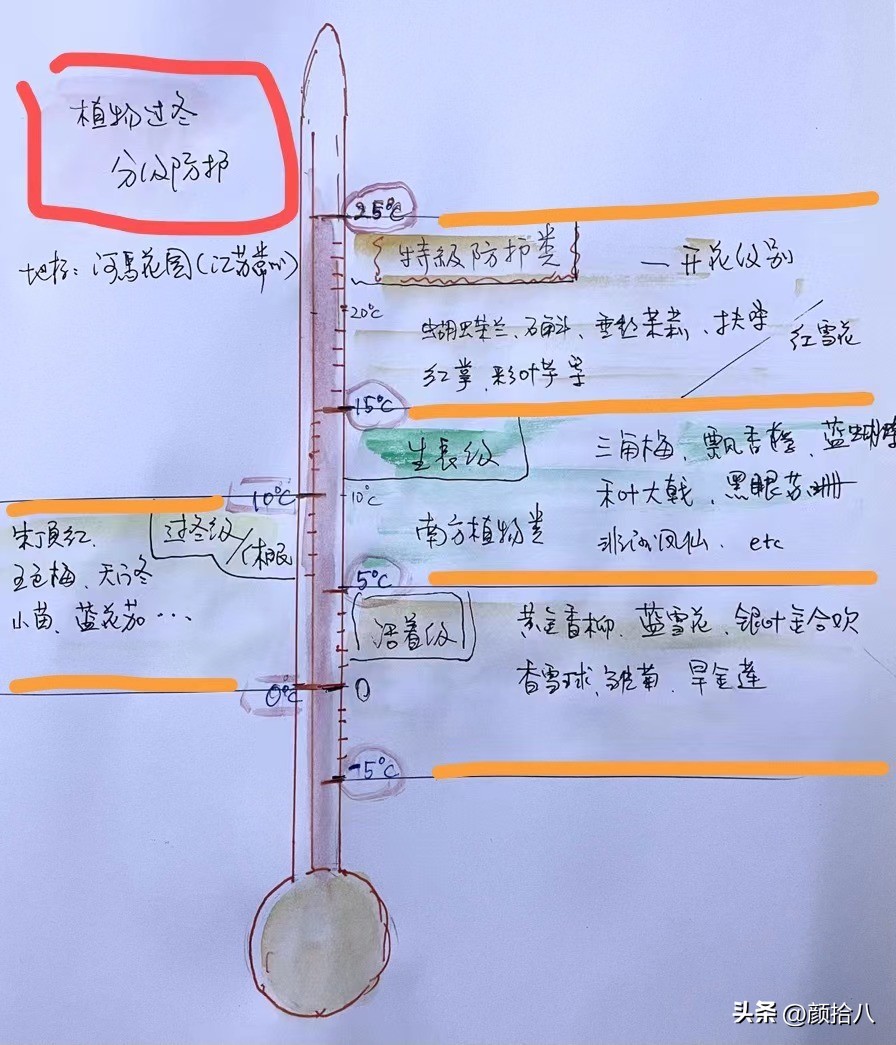 植物过冬
分级防护
地标：河馬花園(江苏常州)
25°C
特级防护类 — 开花级别
20°C
蝴蝶兰、石斛、垂丝茉莉、扶桑
红雪花
红掌、彩叶芋等
15°C
生長级
三角梅、飘香藤、蓝蝴蝶
禾叶大戟、黑眼苏珊
南方植物类
非洲凤仙、etc
10°C
10°C
过冬级/休眠
朱顶红、
五色梅、天门冬
小苗、蓝花茄…
5°C
活着级
黄金香柳、蓝雪花、银叶金合欢
香雪球、雏菊、旱金莲
0°C
0
-5°C
头条 @颜拾八